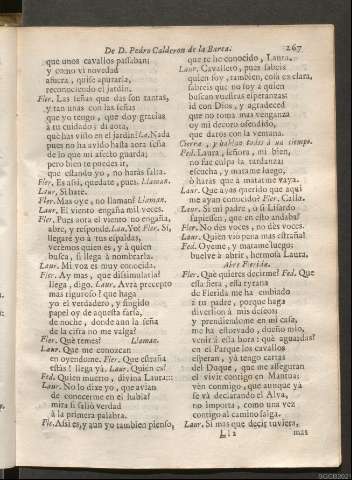 De D. Pedro Calderon de la Barca. 267
que unos cavallos passaban;
y como vi novedad
afuera, quise apurarla,
reconociendo el jardin.
Flor. Las señas que das son tantas,
y tan unas con las señas
que yo tengo, que doy gracias
à tu cuidado; di aora,
què has visto en el jardin? La. Nada
pues no ha avido hasta aora seña
de lo que mi afecto guarda;
pero bien te puedes ir,
que estando yo, no haràs falta.
Flor. Es assi, quedate, pues. Llaman.
Laur. Si harè.
Flor. Mas oye, no llaman? Llaman.
Laur. El viento engaña mil veces.
Flor. Pues aora el viento no engaña,
abre, y responde. Lau. Yo? Flor. Si,
llegarè yo à tus espaldas,
verèmos quien es, y à quien
busca, si llega à nombrarla.
Laur. Mi voz es muy conocida.
Flor. Ay mas, que dissimularla?
llega, digo. Laur. Avrà precepto
mas riguroso? que haga
yo el verdadero, y fingido
papel oy de aquesta farsa,
de noche, donde aun la seña
de la cifra no me valga!
Flor. Què temes? Llaman.
Laur. Que me conozcan
en oyendome. Flor. Que estraña
estàs! llega yà. Laur. Quien es?
Fed. Quien muero, divina Laura:::
Laur. No lo dixe yo, que avian
de conocerme en el habla?
mira si saliò verdad
à la primera palabra.
Flo. Assi es, y aun yo tambien pienso,
que te ho conocido, Laura.
Laur. Cavallero, pues sabeis
quien soy, tambien, cosa es clara,
sabreis que no soy à quien
buscan vuestras esperanzas:
id con Dios, y agradeced
que no toma mas venganza
oy mi decoro ofendido,
que daros con la ventana.
Cierra, y hablan todos à un tiempo.
Fed. Laura, señora, mi bien,
no fue culpa la tardanza;
escucha, y matame luego,
ò haràs que à matarme vaya.
Laur. Que ayas querido que aqui
me ayan conocido! Flor. Calla.
Laur. Si mi padre, ù si Lisardo
supiessen, que en esto andaba!
Flor. No dès voces, no dès voces.
Laur. Quien viò pena mas estraña!
Fed. Oyeme, y matame luego:
buelve à abrir, hermosa Laura.
Abre Flerida.
Flor. Què quieres decirme? Fed. Que
essa fiera, essa tyrana
de Flerida me ha embiado
à tu padre, porque haga
diversion à mis deseos;
y prendiendome en mi casa,
me ha estorvado, dueño mio,
venir à esta hora: què aguardas?
en el Parque los cavallos
esperan, yà tengo cartas
del Duque, que me asseguran
el vivir contigo en Mantua;
vèn conmigo, que aunque yà
se và declarando el Alva,
no importa, como una vez
contigo al camino salga.
Laur. Si mas que decir tuviera,
Ll 2 mas